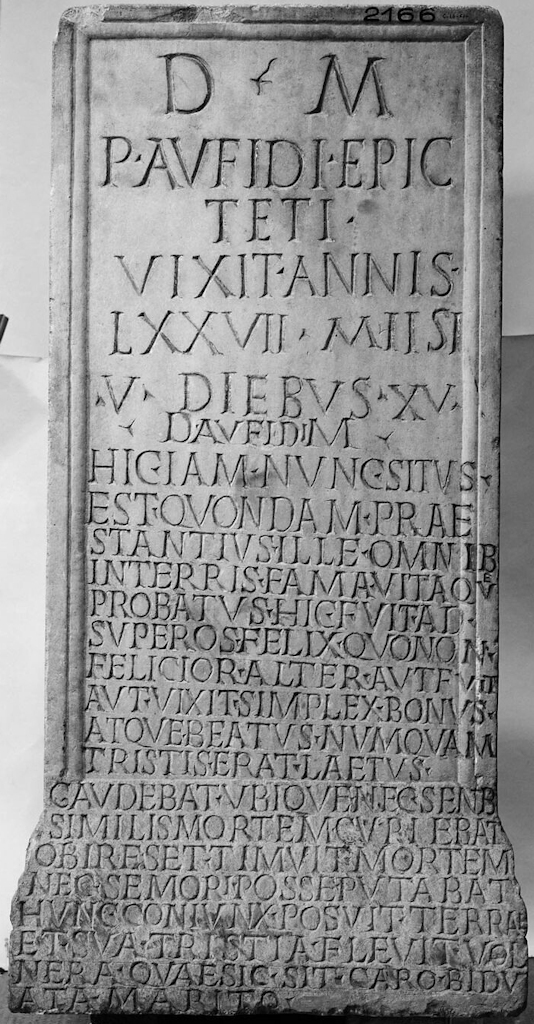 2166
D M
P·AVFIDI·EPIC
TETI·
VIXIT·ANNIS·
LXXVII·MIISI
·V·DIEBVS·XV·
D AVFIDI M
HIC IAM·NVNC SITVS·
EST·QVONDAM·PRAE
STANTIVS·ILLE·OMNIB
IN TERRIS·FAMA·VITAQVE
PROBATVS·HIC FVIT AD·
SVPEROS·FELIX QVO NON·
FELICIOR·ALTER·AVT FVIT
AVT·VIXIT·SIMPLEX·BONVS·
ATQVE·BEATVS·NVMQVAM
TRISTIS·ERAT·LAETVS·
GAVDEBAT·VBIQVE·NEC SENB
SIMILIS MORTEM CVPIEBAT
OBIRE SET·TIMVIT MORTEM
NEC·SE MORI·POSSE PVTABAT
HVNC CONIVNX·POSVIT·TERRAE
ET·SVA·TRISTIA FLEVIT·VOL
NERA·QVAE SIC·SIT·CARO·BIDV
ATA·MARITO·